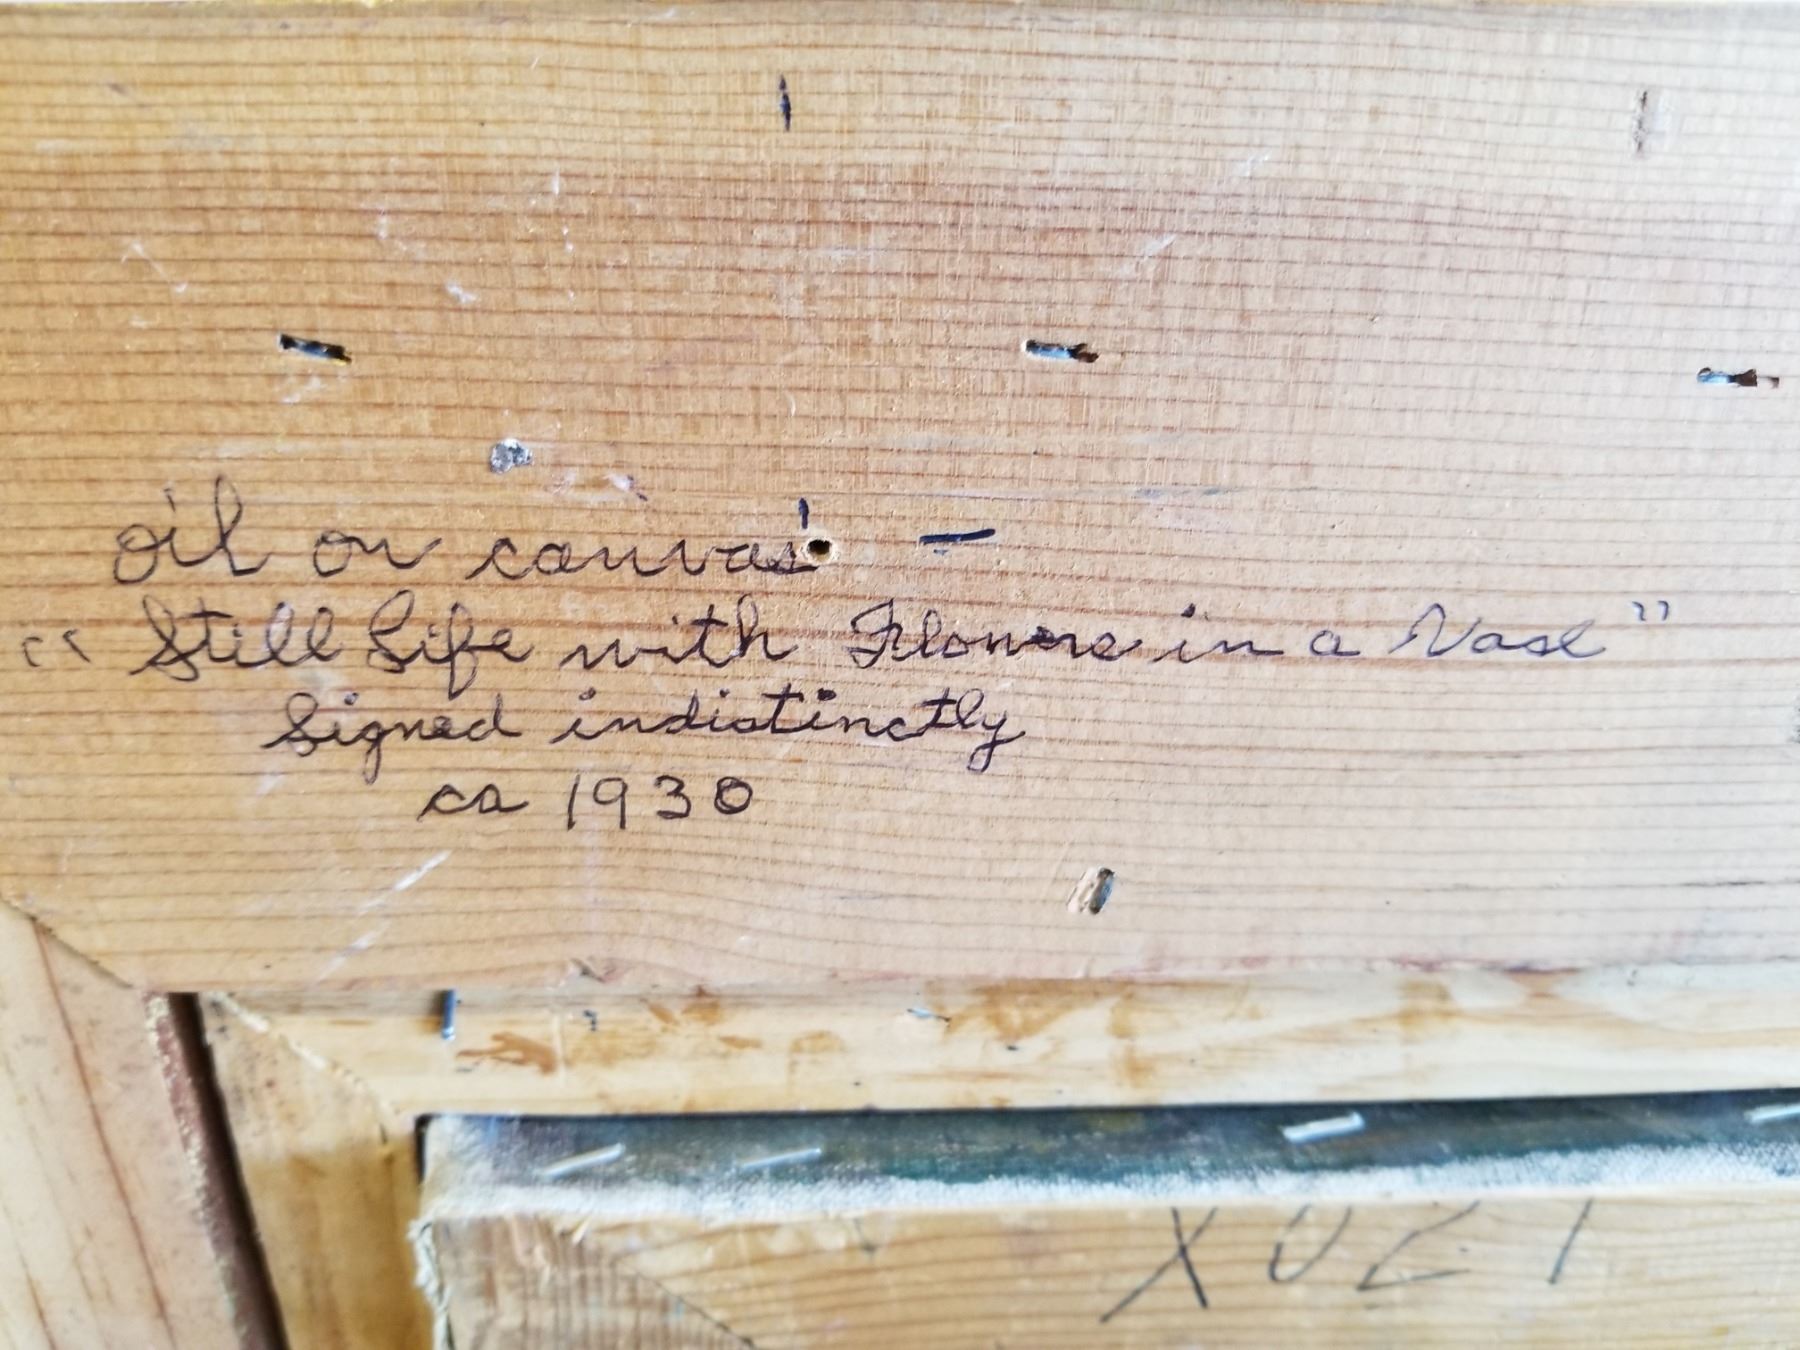 oil on canvas
"Still Life with Flowers in a Vase"
Signed indistinctly
ca 1930